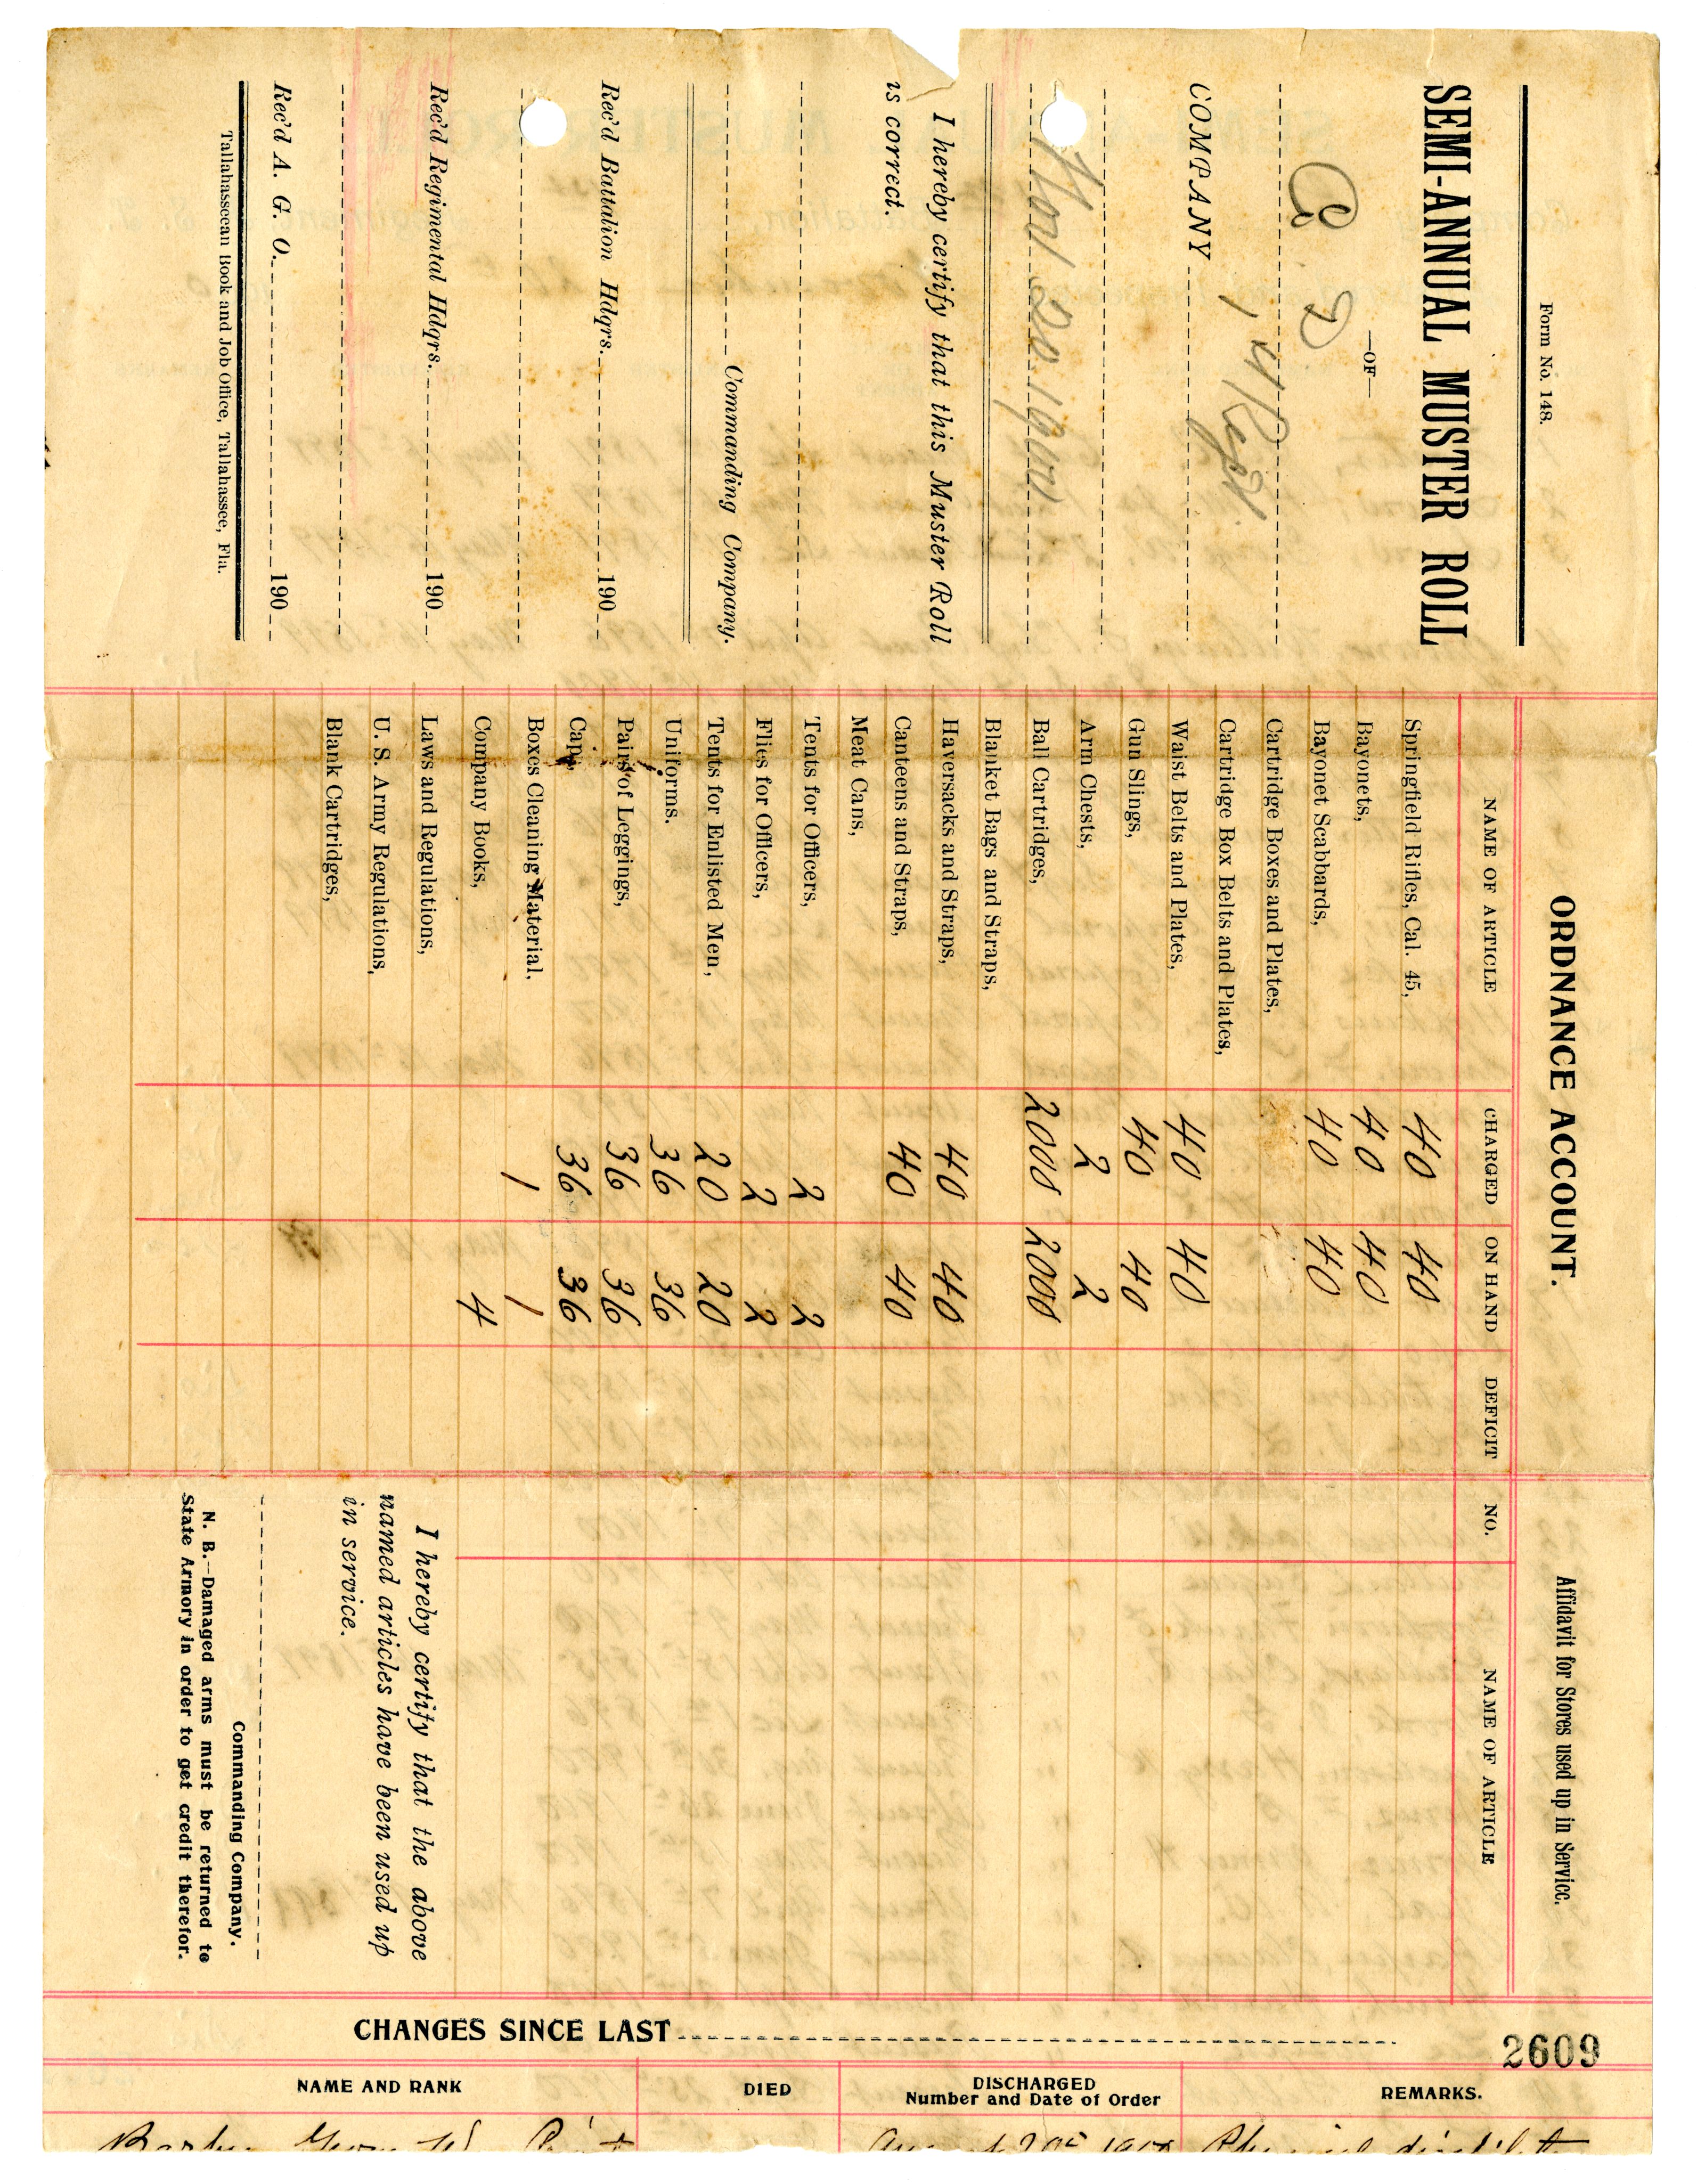 Form No. 148.
SEMI-ANNUAL MUSTER ROLL
—OF—
Co. D
COMPANY 1st Regt.
Nov 20. 1900
I hereby certify that this Muster Roll
is correct.
Commanding Company.
Rec'd Battalion Hdqrs. 190
Rec'd Regimental Hdqrs. 190
Rec'd A. G. O. 190
Tallahasseean Book and Job Office, Tallahassee, Fla.
ORDNANCE ACCOUNT.
NAME OF ARTICLE CHARGED ON HAND DEFICIT
Springfield Rifles, Cal. 45, 40 40
Bayonets, 40 40
Bayonet Scabbards, 40 40
Cartridge Boxes and Plates,
Cartridge Box Belts and Plates,
Waist Belts and Plates, 40 40
Gun Slings, 40 40
Arm Chests, 2 2
Ball Cartridges, 2000 2000
Blanket Bags and Straps,
Haversacks and Straps, 40 40
Canteens and Straps, 40 40
Meat Cans,
Tents for Officers, 2 2
Flies for Officers, 2 2
Tents for Enlisted Men, 20 20
Uniforms. 36 36
Pairs of Leggings, 36 36
Caps, 36 36
Boxes Cleaning Material. 1 1
Company Books, 4
Laws and Regulations,
U. S. Army Regulations,
Blank Cartridges,
Affidavit for Stores used up in Service.
NO. NAME OF ARTICLE
I hereby certify that the above
named articles have been used up
in service.
Commanding Company.
N. B.—Damaged arms must be returned to
State Armory in order to get credit therefor.
2609
CHANGES SINCE LAST
NAME AND RANK DIED DISCHARGED
Number and Date of Order REMARKS.